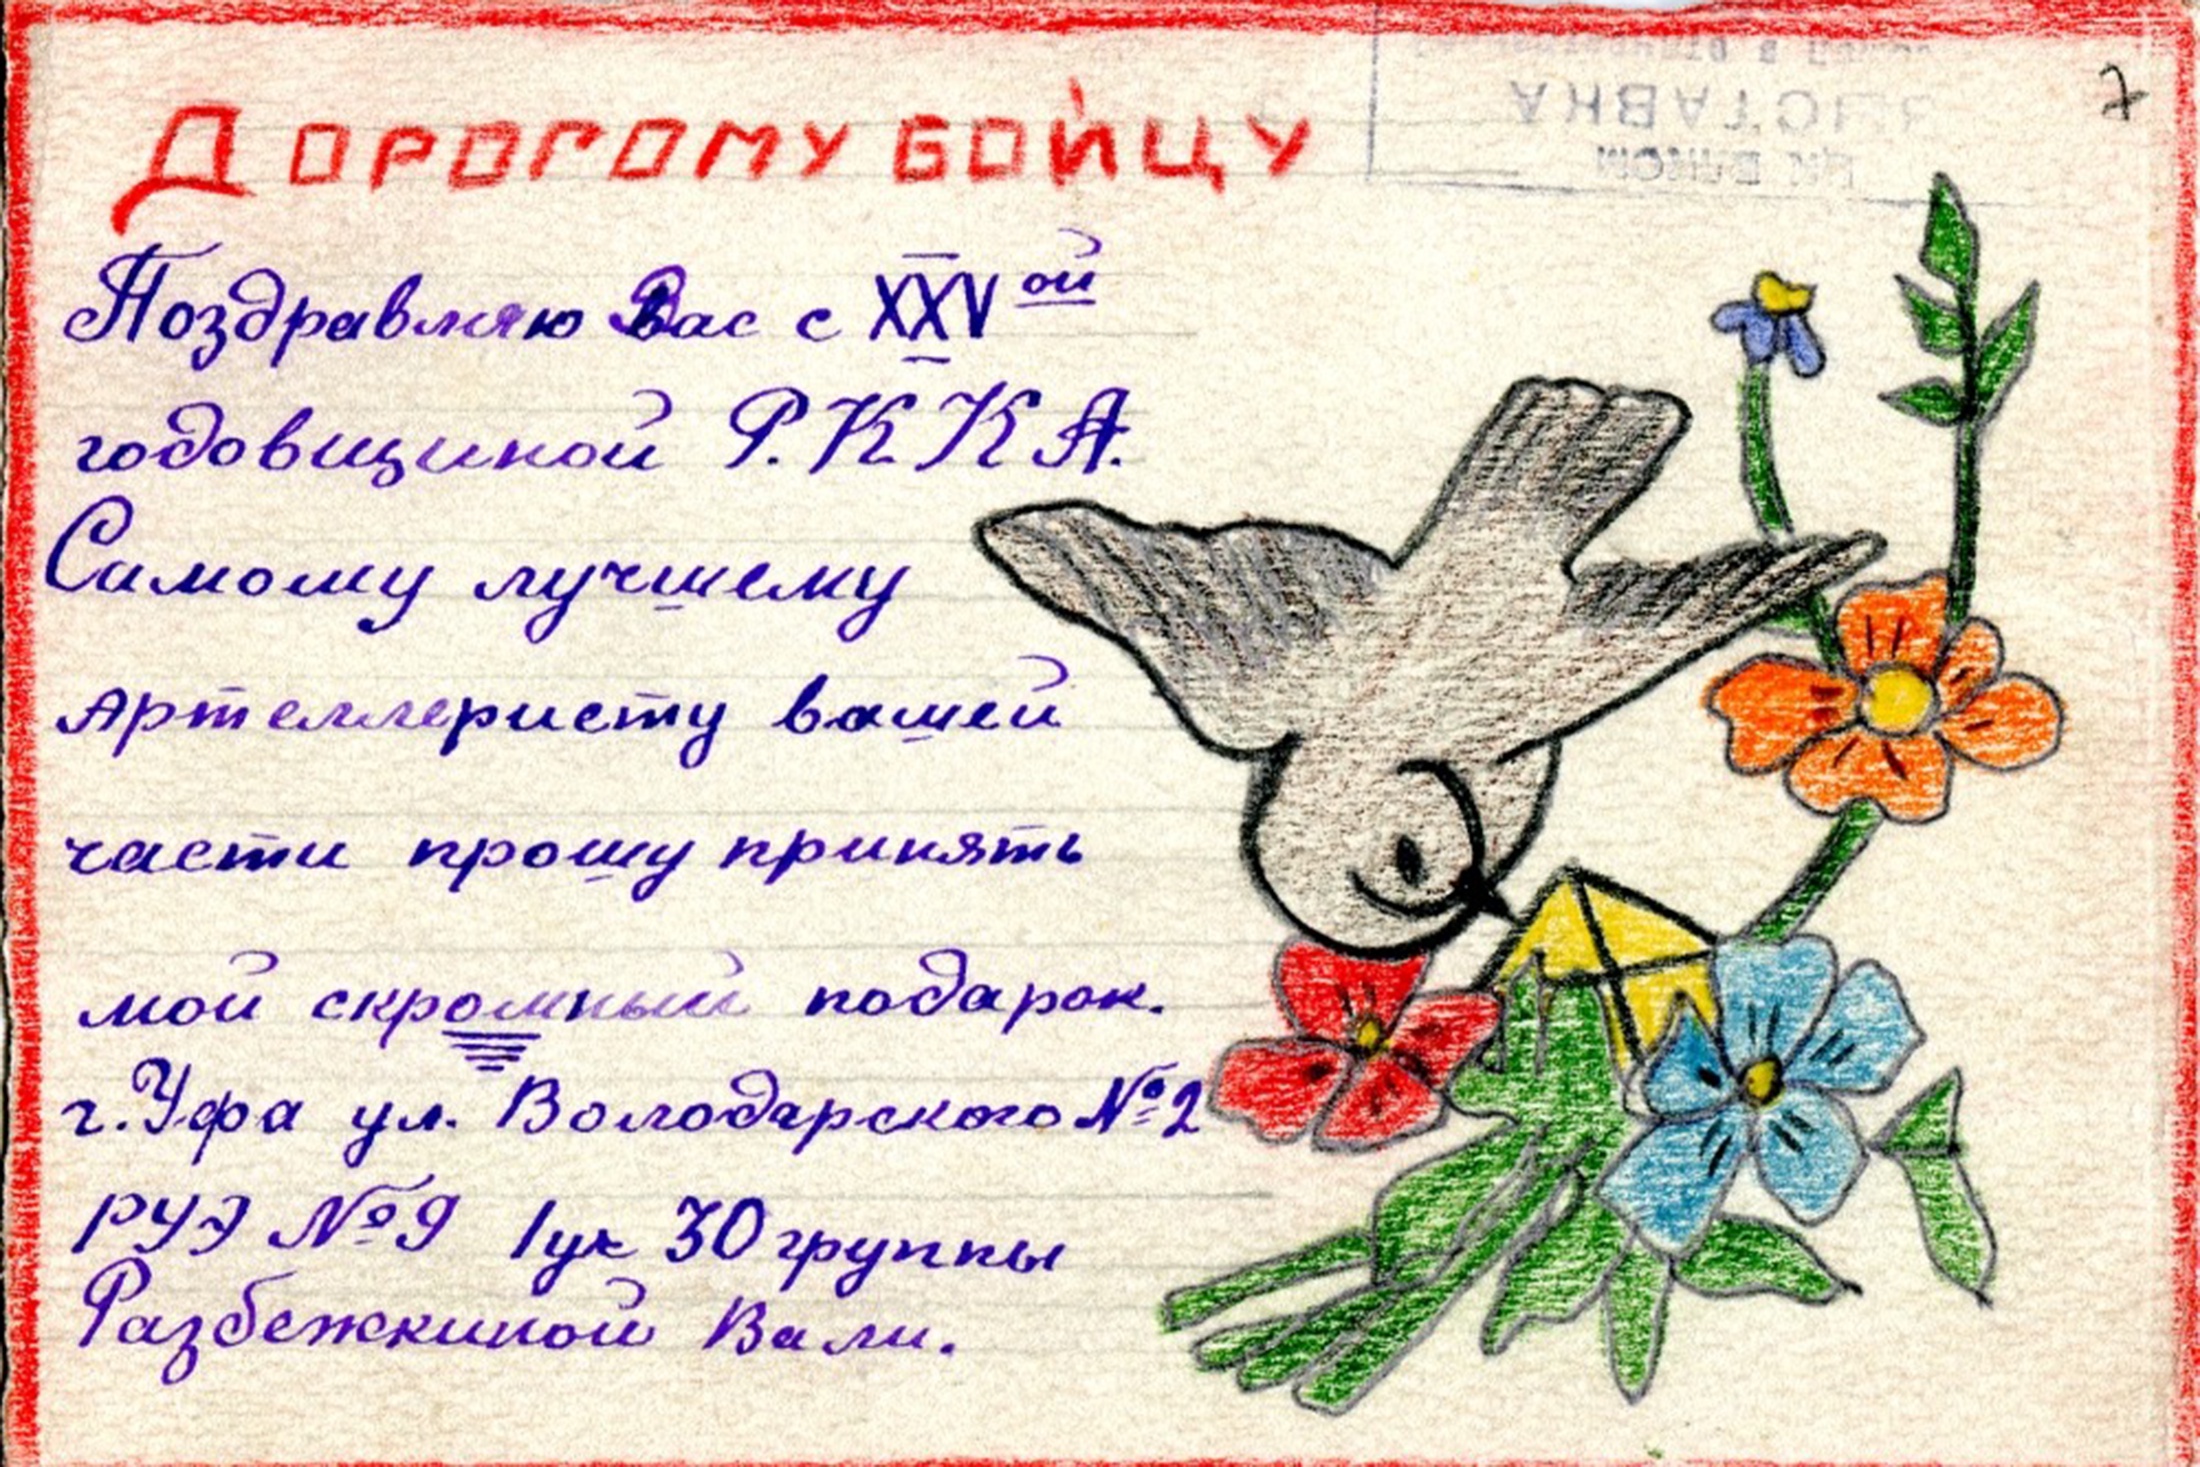 ДОРОГОМУ БОЙЦУ
Поздравляю Вас с XXV ой
годовщиной Р.К.К.А.
Самому лучшему
артеллеристу вашей
части прошу принять
мой скромный подарок.
г. Уфа ул. Володарского №2
РУЭ №9 1ук 30 группы
Разбежкиной Вали.
ВЫСТАВКА
ЦК ВЛКСМ
7